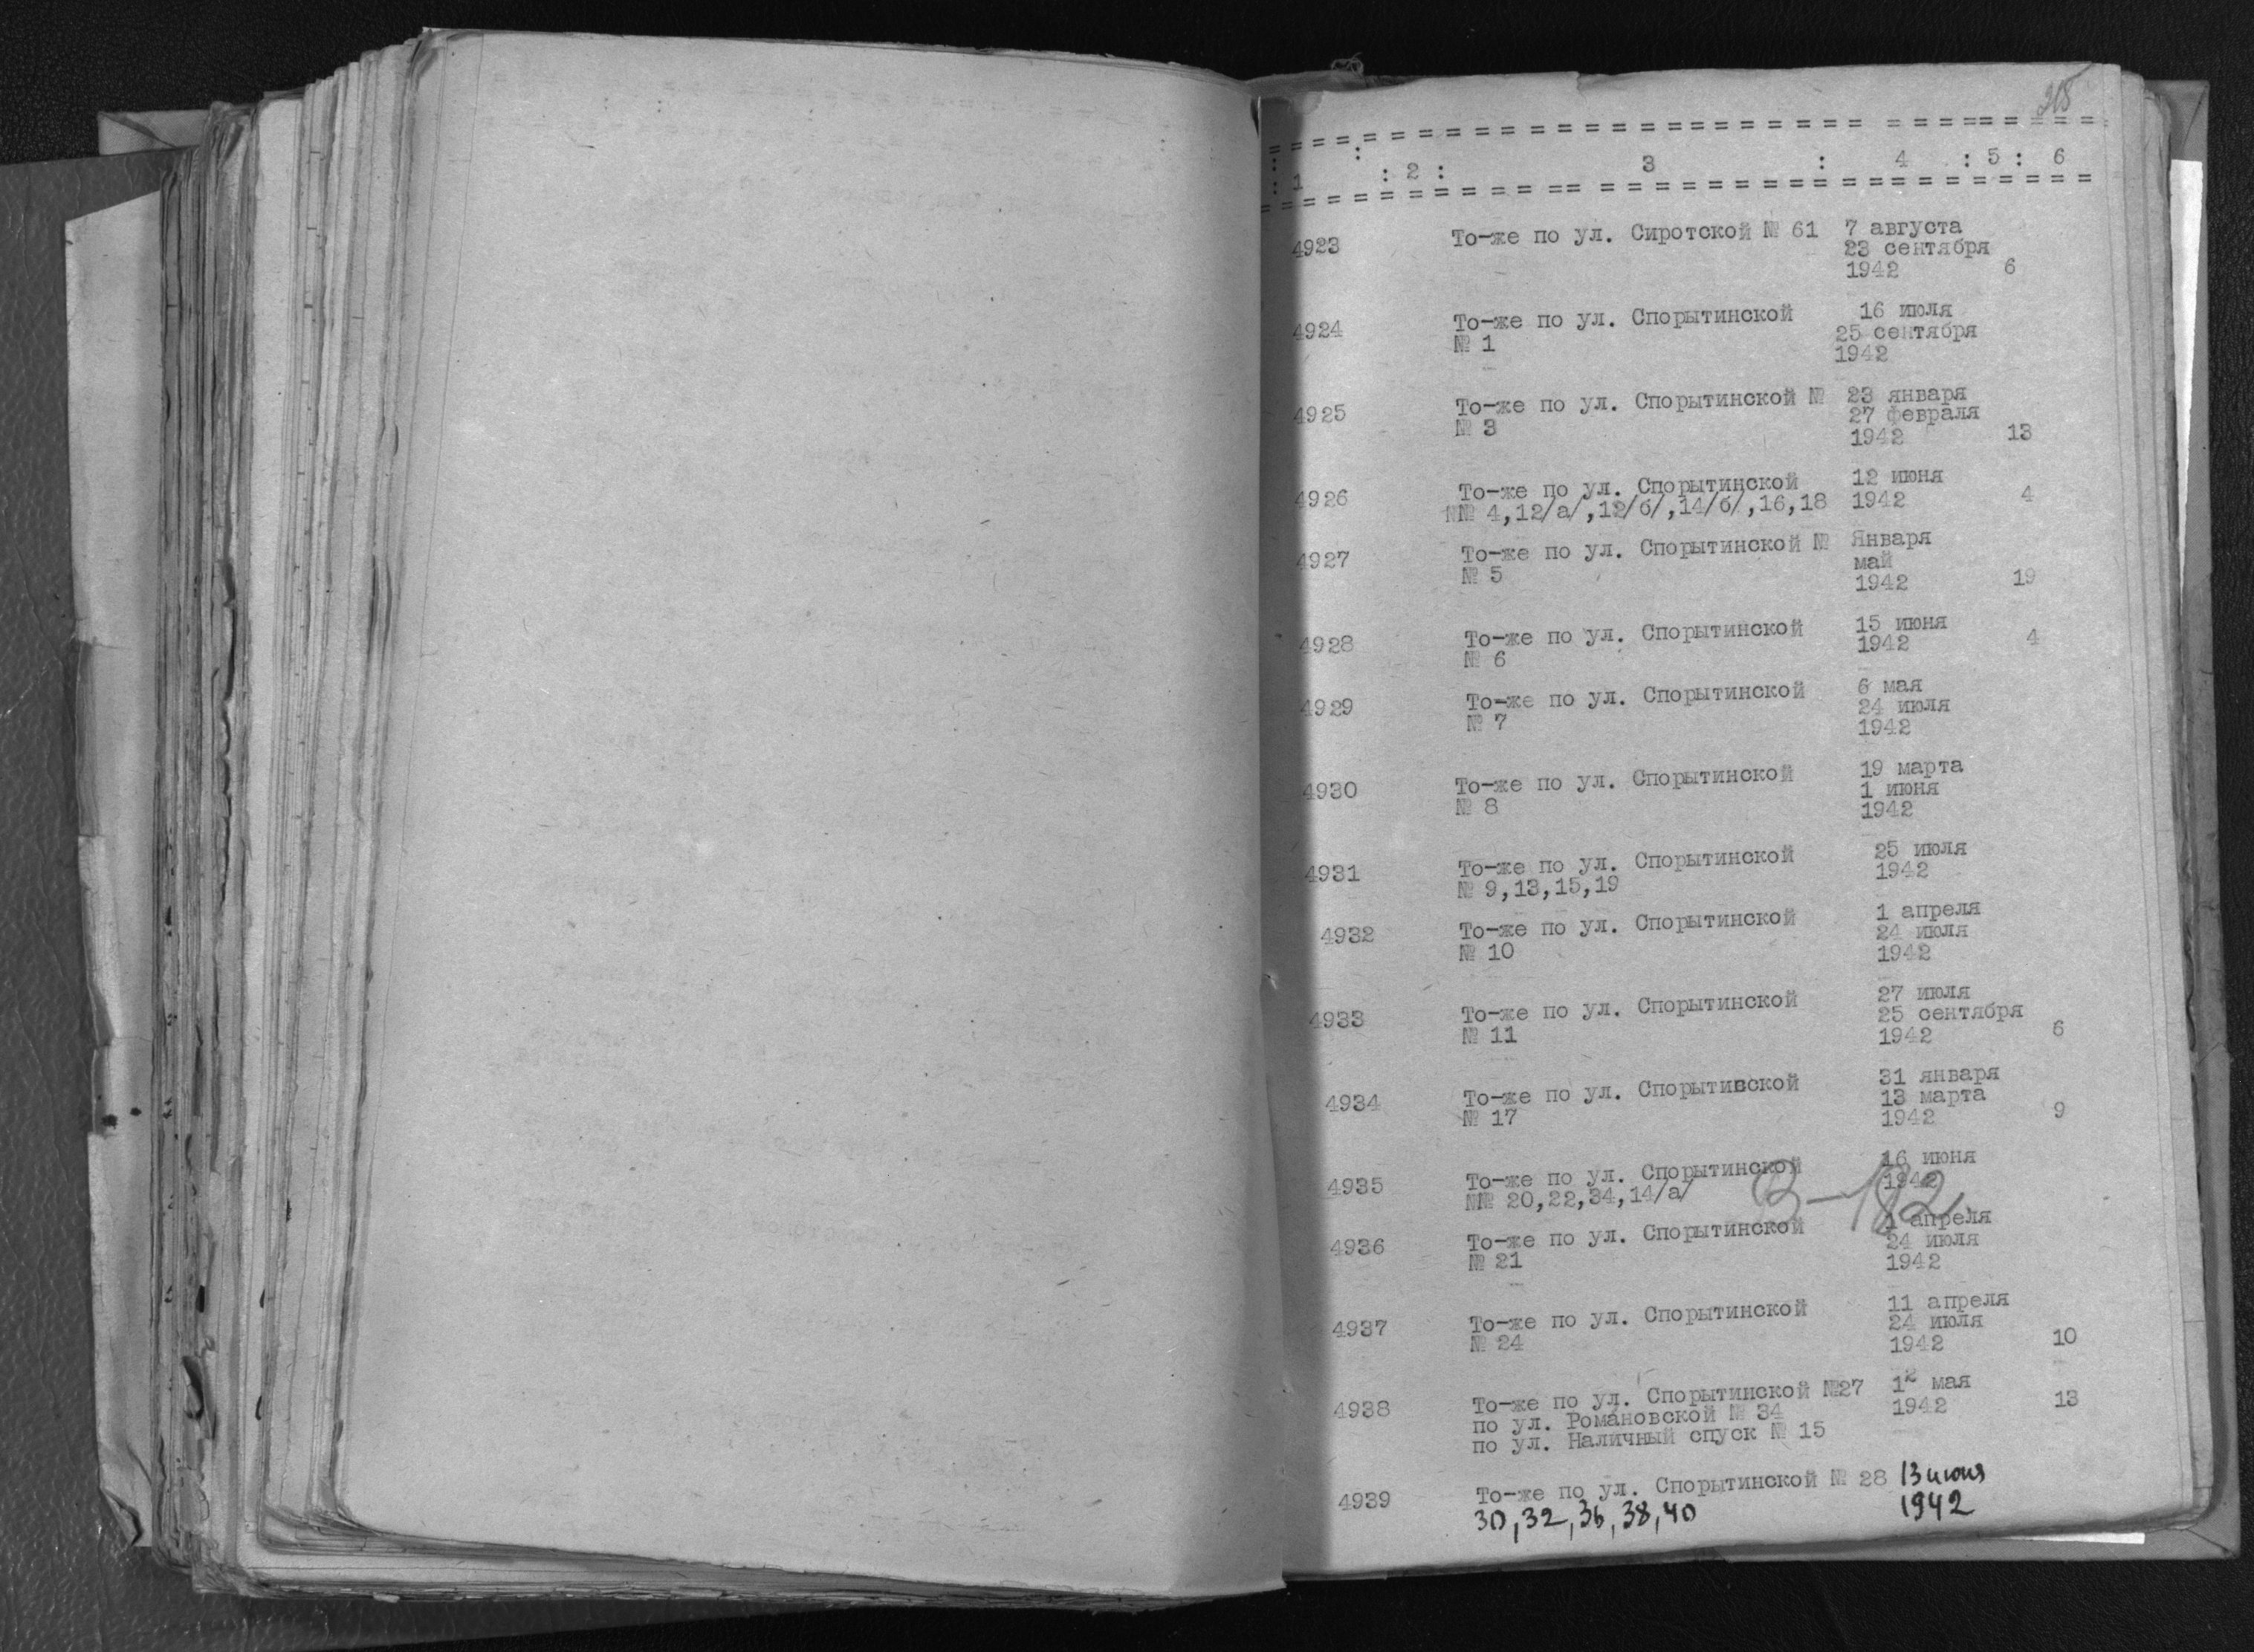 318
: 1 : 2 : 3 : 4 : 5 : 6
4923 То-же по ул. Сиротской № 61 7 августа
23 сентября
1942 6
4924 То-же по ул. Спорытинской 16 июля
№ 1 25 сентября
1942
4925 То-же по ул. Спорытинской № 23 января
№ 3 27 февраля
1942 13
4926 То-же по ул. Спорытинской 12 июня
№№ 4,12/а/,12/б/,14/б/,16,18 1942 4
4927 То-же по ул. Спорытинской № Января
№ 5 май
1942 19
4928 То-же по ул. Спорытинской 15 июня
№ 6 1942 4
4929 То-же по ул. Спорытинской 6 мая
№ 7 24 июля
1942
4930 То-же по ул. Спорытинской 19 марта
№ 8 1 июня
1942
4931 То-же по ул. Спорытинской 25 июля
№ 9,13,15,19 1942
4932 То-же по ул. Спорытинской 1 апреля
№ 10 24 июля
1942
4933 То-же по ул. Спорытинской 27 июля
№ 11 25 сентября
1942 6
4934 То-же по ул. Спорытивской 31 января
№ 17 13 марта
1942 9
4935 То-же по ул. Спорытинской 16 июня
№№ 20,22,34,14/а/ 1942
В-182
4936 То-же по ул. Спорытинской 1 апреля
№ 21 24 июля
1942
4937 То-же по ул. Спорытинской 11 апреля
№ 24 24 июля
1942 10
4938 То-же по ул. Спорытинской №27 12 мая
по ул. Романовской № 34 1942 13
по ул. Наличный спуск № 15
4939 То-же по ул. Спорытинской № 28 13 июня
30, 32, 36, 38, 40 1942